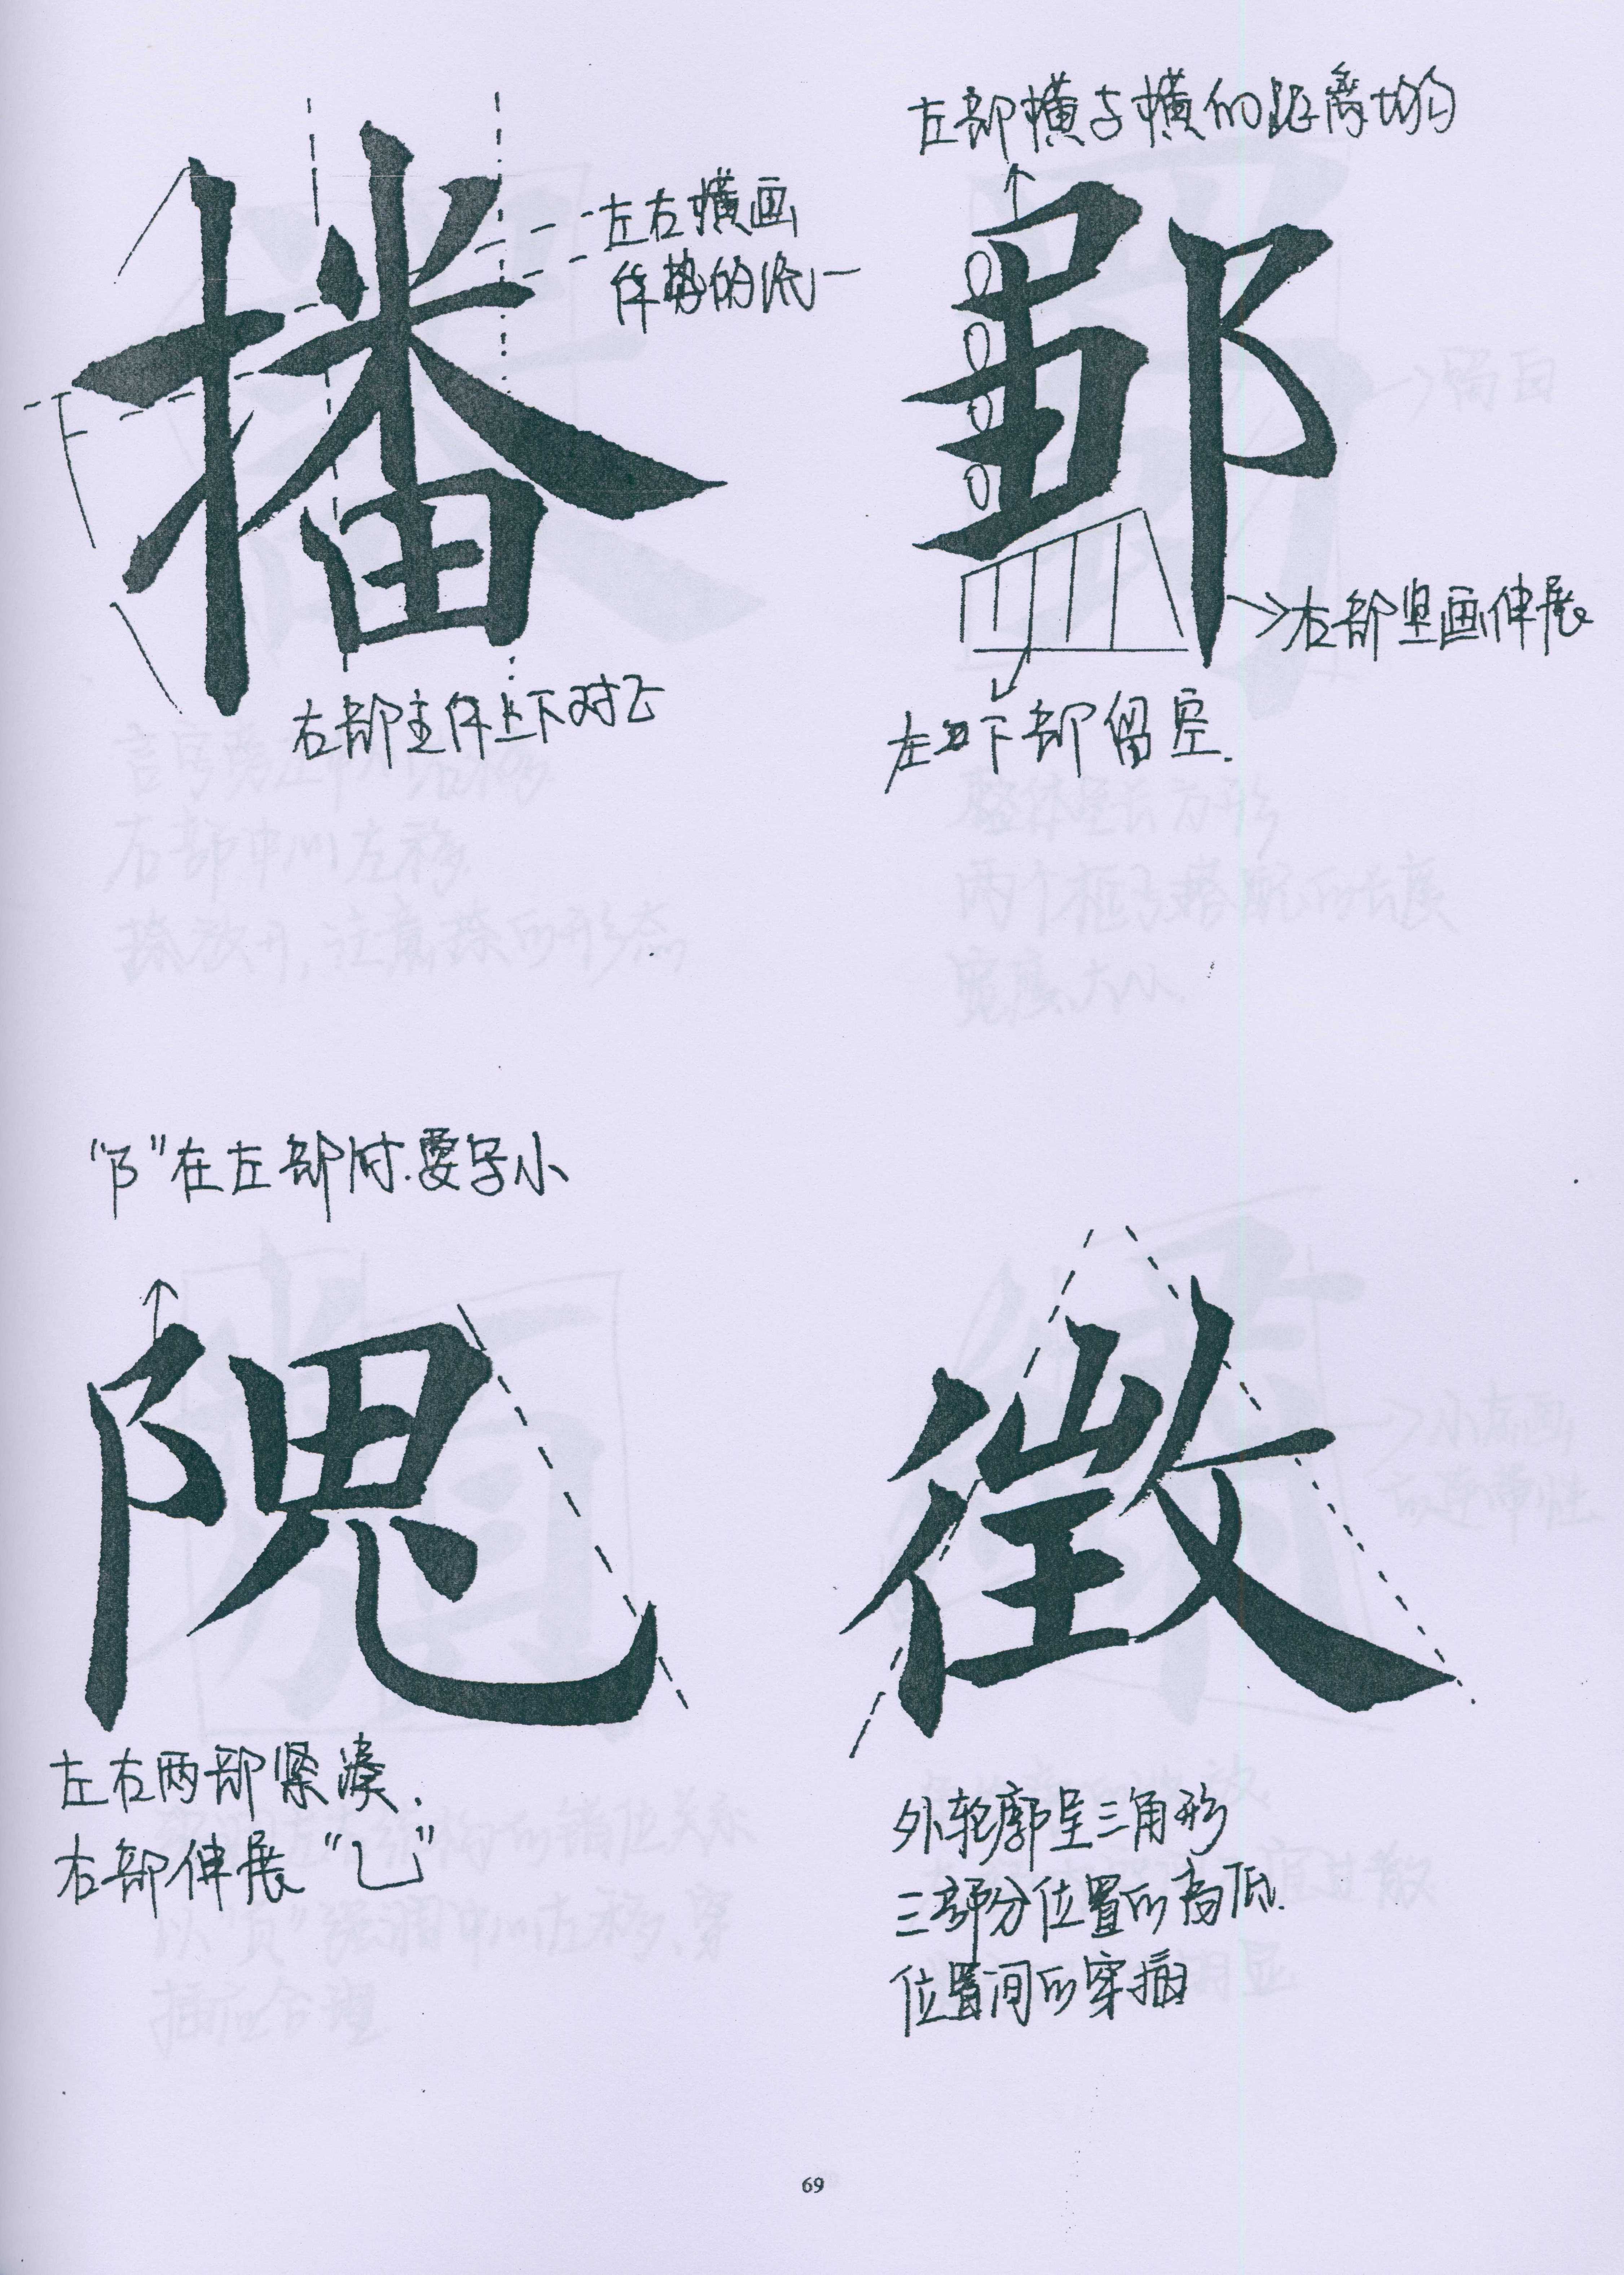 播
左右横画
体势的统一
右部主体上下对正
左部横与横的距离均匀
鄄
右部竖画伸展
左下部留空.
“阝”在左部时.要写小
隗
左右两部紧凑.
右部伸展“乚”
徵
外轮廓呈三角形
三部分位置的高低.
位置间的穿插
69